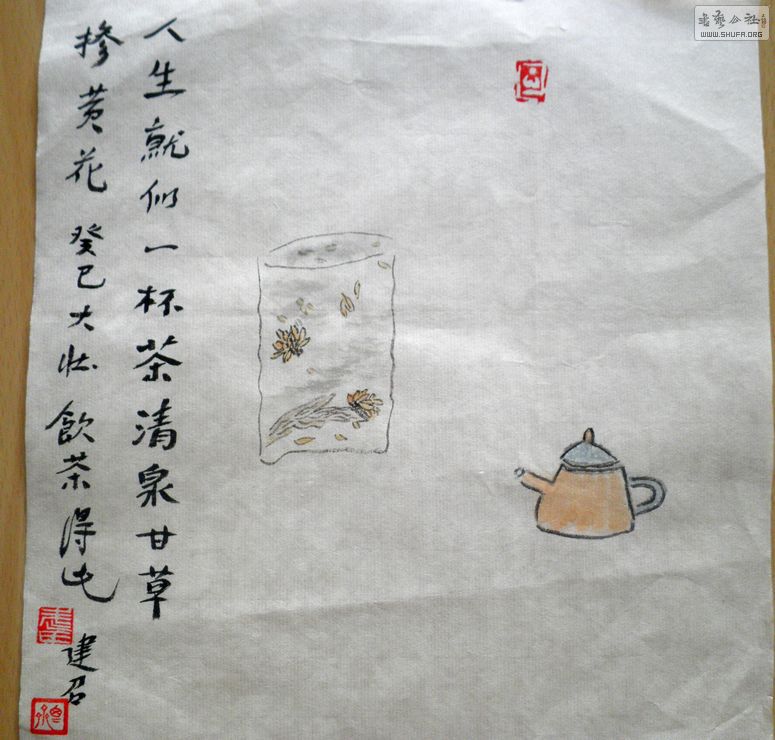 人生就似一杯茶清泉甘草
掺黄花 癸巳大壮 飲茶得此 建召
书艺公社
WWW.SHUFA.ORG